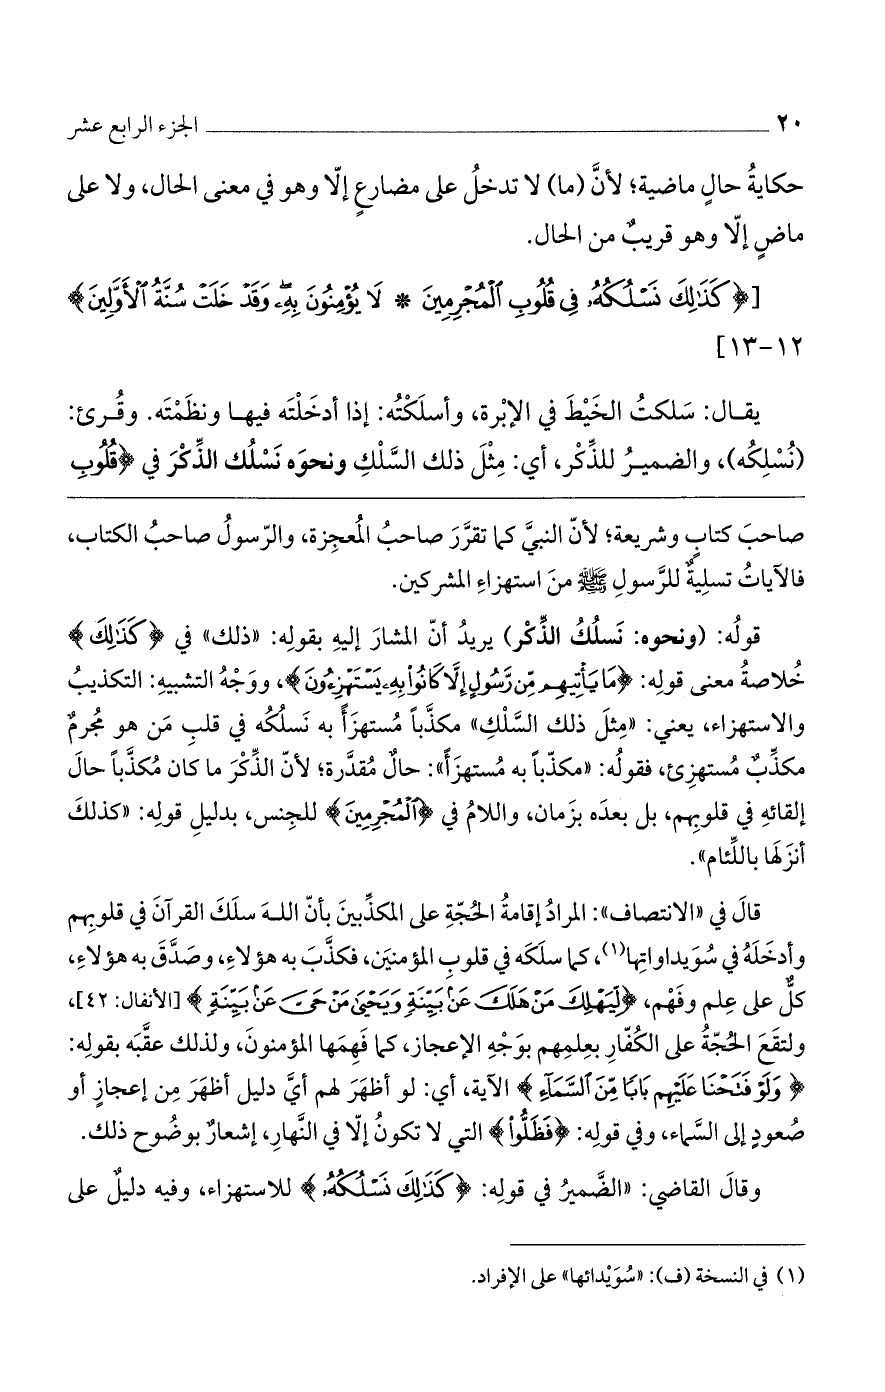 ٢٠ الجزء الرابع عشر
حكايةُ حالٍ ماضية؛ لأنَّ (ما) لا تدخلُ على مضارعٍ إلّا وهو في معنى الحال، ولا على
ماضٍ إلّا وهو قريبٌ من الحال.
[﴿كَذَٰلِكَ نَسْلُكُهُۥ فِى قُلُوبِ ٱلْمُجْرِمِينَ * لَا يُؤْمِنُونَ بِهِۦۖ وَقَدْ خَلَتْ سُنَّةُ ٱلْأَوَّلِينَ﴾
١٢-١٣]
يقـال: سَلكتُ الخَيْطَ في الإبْرة، وأسلَكْتُه: إذا أدخَلْتَه فيهـا ونظَمْتَه. وقُـرئ:
(نُسْلِكُه)، والضميـرُ للذِّكْر، أي: مِثْلَ ذلك السَّلْكِ ونحوَه نَسْلُك الذِّكْرَ في ﴿قُلُوبِ
صاحبَ كتابٍ وشريعة؛ لأنّ النبيَّ كما تقرَّرَ صاحبُ المُعجِزة، والرّسولُ صاحبُ الكتاب،
فالآياتُ تسلِيةٌ للرَّسولِ ﷺ منَ استهزاءِ المشركين.
قولُه: (ونحوه: نَسلُكُ الذِّكْر) يريدُ أنّ المشارَ إليهِ بقولِه: «ذلك» في ﴿كَذَٰلِكَ﴾
خُلاصةُ معنى قولِه: ﴿مَا يَأْتِيهِم مِّن رَّسُولٍ إِلَّا كَانُوا۟ بِهِۦ يَسْتَهْزِءُونَ﴾، ووَجْهُ التشبيهِ: التكذيبُ
والاستهزاء، يعني: «مِثلَ ذلك السَّلْكِ» مكذَّباً مُستهزَأً به نَسلُكُه في قلبِ مَن هو مُجرمٌ
مكذِّبٌ مُستهزِئ، فقولُه: «مكذّباً به مُستهزَأً»: حالٌ مُقدَّرة؛ لأنّ الذِّكْرَ ما كان مُكذَّباً حالَ
إلقائهِ في قلوبِهم، بل بعدَه بزَمان، واللامُ في ﴿ٱلْمُجْرِمِينَ﴾ للجِنس، بدليلِ قولِه: «كذلكَ
أنزِلَها باللِّئام».
قالَ في «الانتصاف»: المرادُ إقامةُ الحُجّةِ على المكذِّبينَ بأنّ اللهَ سلَكَ القرآنَ في قلوبِهم
وأدخَلَهُ في سُوَيداواتِها(١)، كما سلَكَه في قلوبِ المؤمنيَن، فكذَّبَ به هؤلاءِ، وصَدَّقَ به هؤلاءِ،
كلٌّ على عِلم وفَهْم، ﴿لِّيَهْلِكَ مَنْ هَلَكَ عَنۢ بَيِّنَةٍ وَيَحْيَىٰ مَنْ حَىَّ عَنۢ بَيِّنَةٍ﴾ [الأنفال: ٤٢]،
ولتقَعَ الحُجّةُ على الكُفّارِ بعِلمِهم بوَجْهِ الإعجاز، كما فَهِمَها المؤمنونَ، ولذلك عقَّبَه بقولِه:
﴿وَلَوْ فَتَحْنَا عَلَيْهِم بَابًا مِّنَ ٱلسَّمَآءِ﴾ الآية، أي: لو أظهَرَ لهم أيَّ دليل أظهَرَ مِن إعجازٍ أو
صُعودٍ إلى السَّماء، وفي قولِه: ﴿فَظَلُّوا۟﴾ التي لا تكونُ إلّا في النَّهارِ، إشعارٌ بوضُوح ذلك.
وقالَ القاضي: «الضَّميرُ في قولِه: ﴿كَذَٰلِكَ نَسْلُكُهُۥ﴾ للاستهزاء، وفيه دليلٌ على
(١) في النسخة (ف): «سُوَيْدائها» على الإفراد.